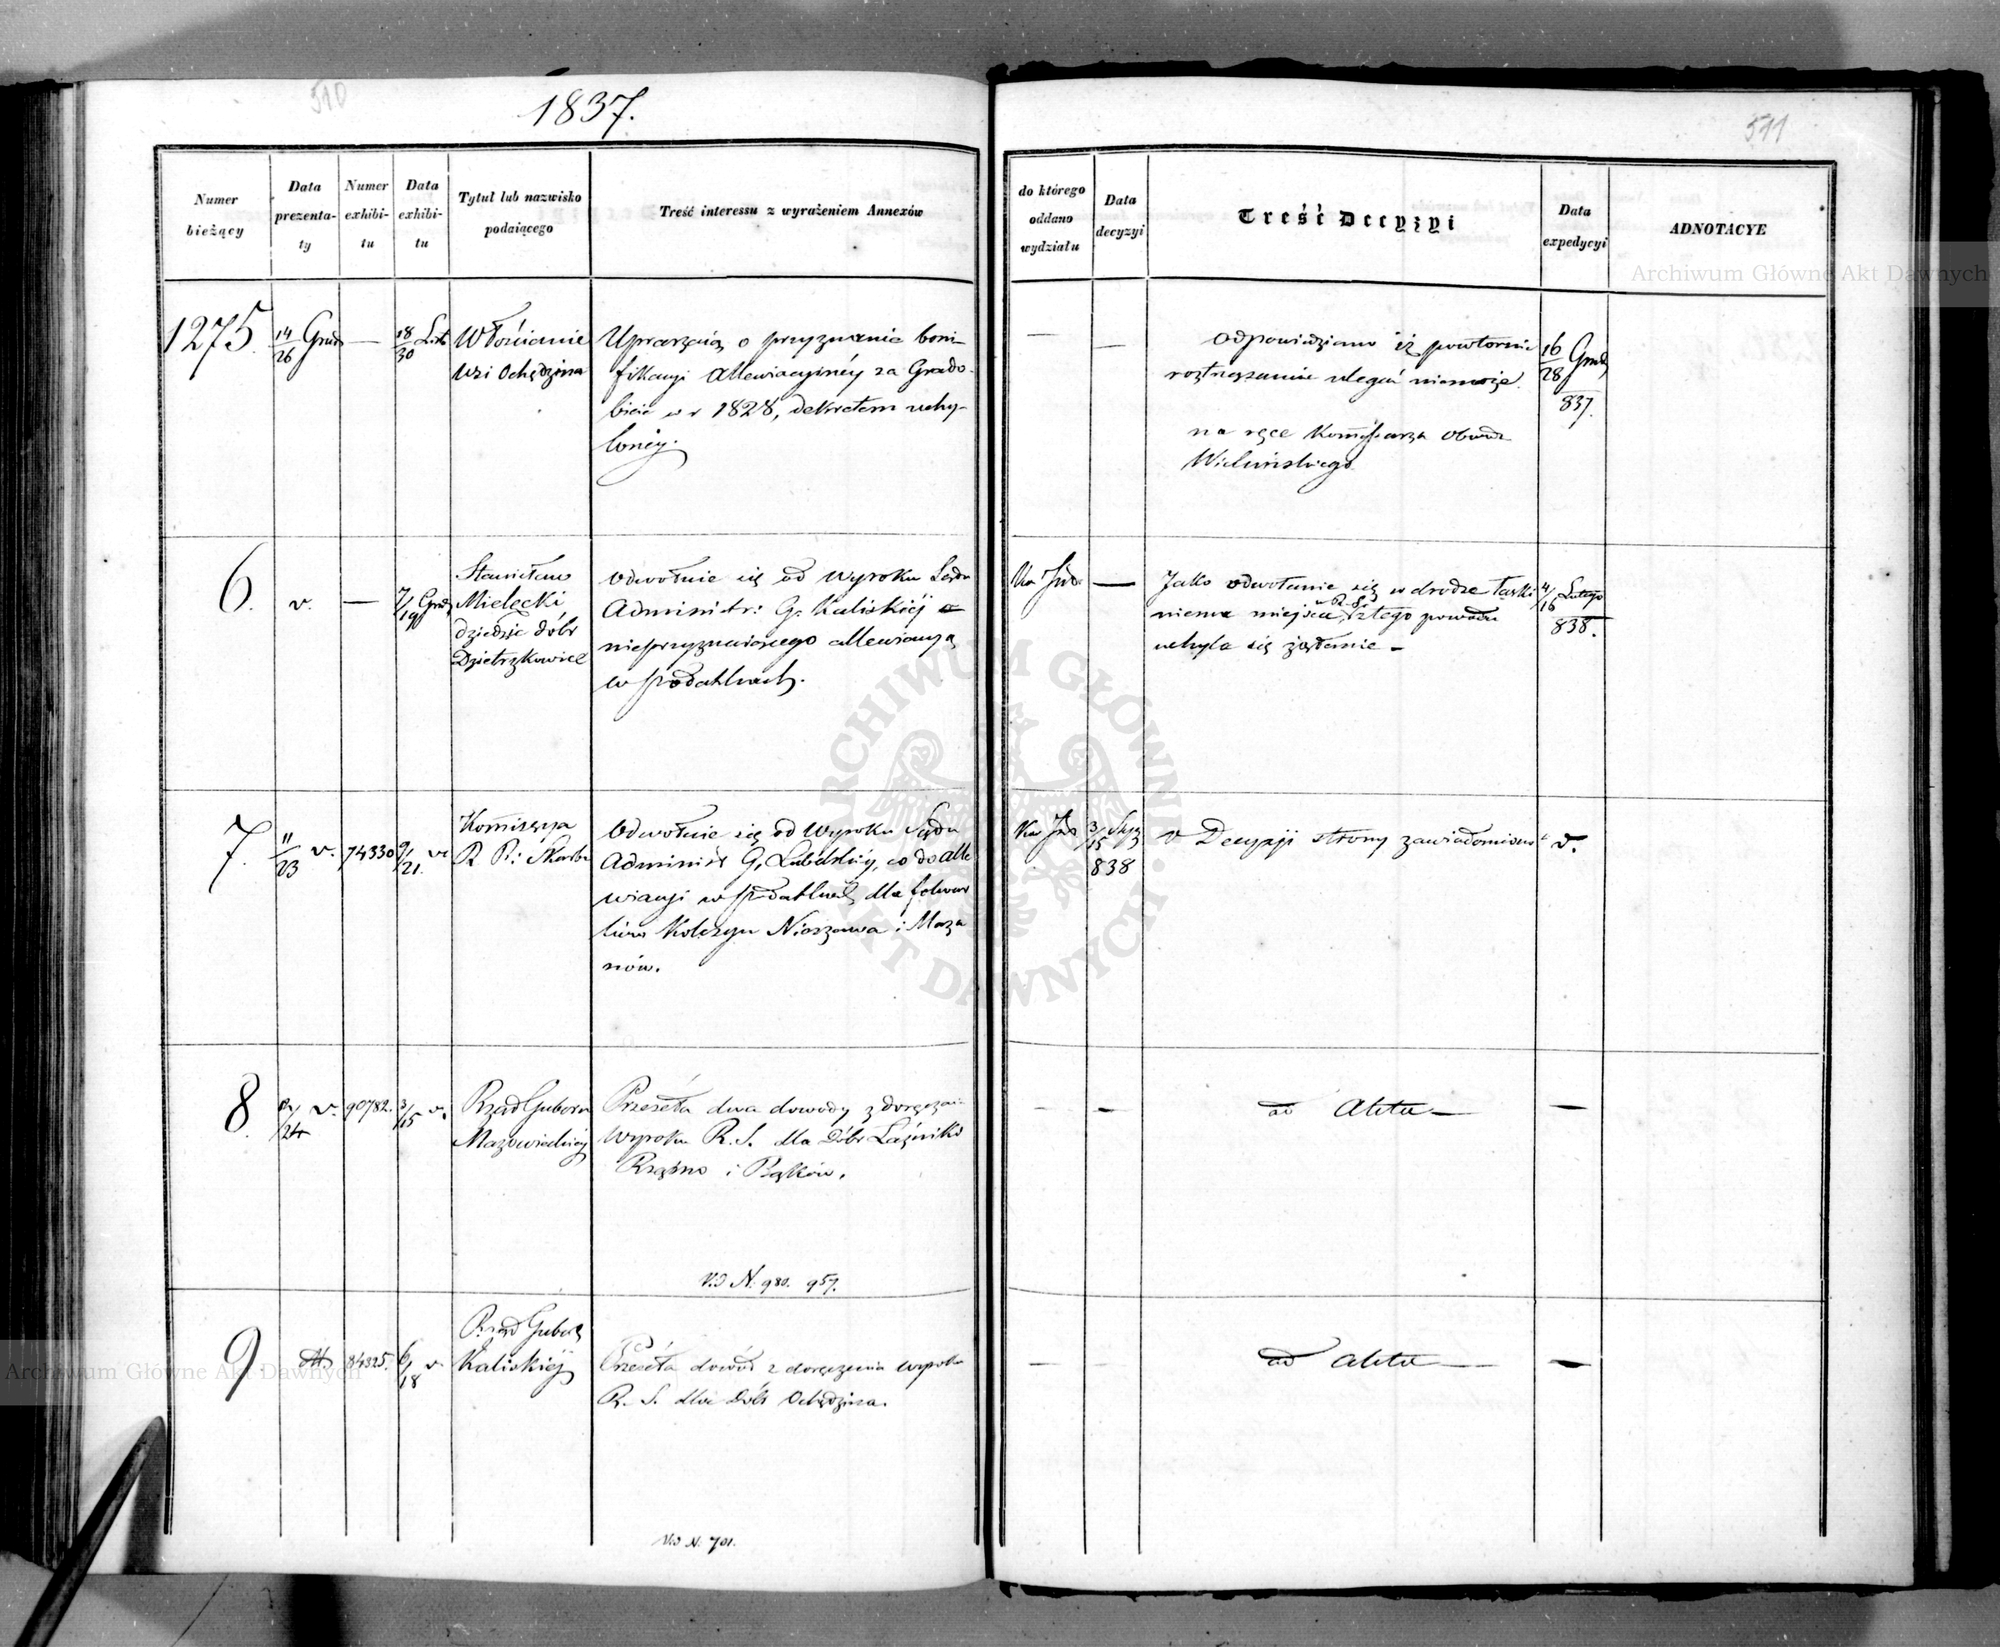 510
1837.
Numer bieżący
Data prezenta-ty
Numer exhibi-tu
Data exhibi-tu
Tytuł lub nazwisko podaiącego
Treść interessu z wyrażeniem Annexów
1275.
14/26 Grud
—
18/30 List
Włościanie
Wsi Ochędzina
Upraszaią o przyznanie boni-
fikacyi allewiacyinéy za Grado-
bicie w r 1828, dekretem uchy-
lonéy.
6.
v.
—
7/19 Grud
Stanisław
Mielęcki
dziedzic dóbr
Dzietrzkowice
Odwołnie się od wyroku Sądu
Administr: G. Kaliskiéj
nieprzyznaiącego allewiacyą
w podatkach.
7.
11/23 v.
74330
9/21 v.
Kommissya
R. P. i Skarbu
Odwołnie się od Wyroku Sądu
Administ G. Lubelskiéy, co do alle
wiacyi w podatkach dla folwar
ków Kolczyn Nieszawa i Maza
nów.
8.
12/24 v.
90782.
3/15 v.
Rząd Gubern
Mazowieckiéj
Przeséła dwa dowody z doręczenia
Wyroku R. S. dla Dóbr Łaźniki
Rząśno i Bąków.
V.d N. 980. 957.
9.
dtt.
84325.
6/18 v.
Rząd Gubern
Kaliskiéj
Przeséła dowód z doręczenia wyroku
R. S. dla Dóbr Ochędzina.
V.d N. 701.
511
do którego oddano wydziału
Data decyzyi
Treść Decyzyi
Data expedycyi
ADNOTACYE
—
—
Odpowiedziano iż powtornie
roztrząsanie ulegać niemoże.
na ręce Kommissarza Obwodu
Wieluńskiego
16/28 Grud
837.
—
Jako odwołanie się w drodze łaski
niema mieysca w R. S. z tego powodu
uchyla się żądanie —
4/16 Lutego
838.
3/15 Stycz
838
v Decyzyi strony zawiadomione
v.
—
—
ad Acta —
—
—
—
ad Acta —
—
Archiwum Główne Akt Dawnych
Archiwum Główne Akt Dawnych
ARCHIWUM GŁÓWNE AKT DAWNYCH